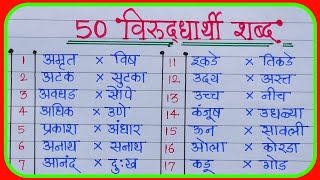 50 विरुद्धार्थी शब्द
1 अमृत × विष 11 इकडे × तिकडे
2 अटक × सुटका 12 उदय × अस्त
3 अवघड × सोपे 13 उच्च × नीच
4 अधिक × उणे 14 कंजूष × उधळ्या
5 प्रकाश × अंधार 15 ऊन × सावली
6 अनाथ × सनाथ 16 ओला × कोरडा
7 आनंद × दुःख 17 कडू × गोड